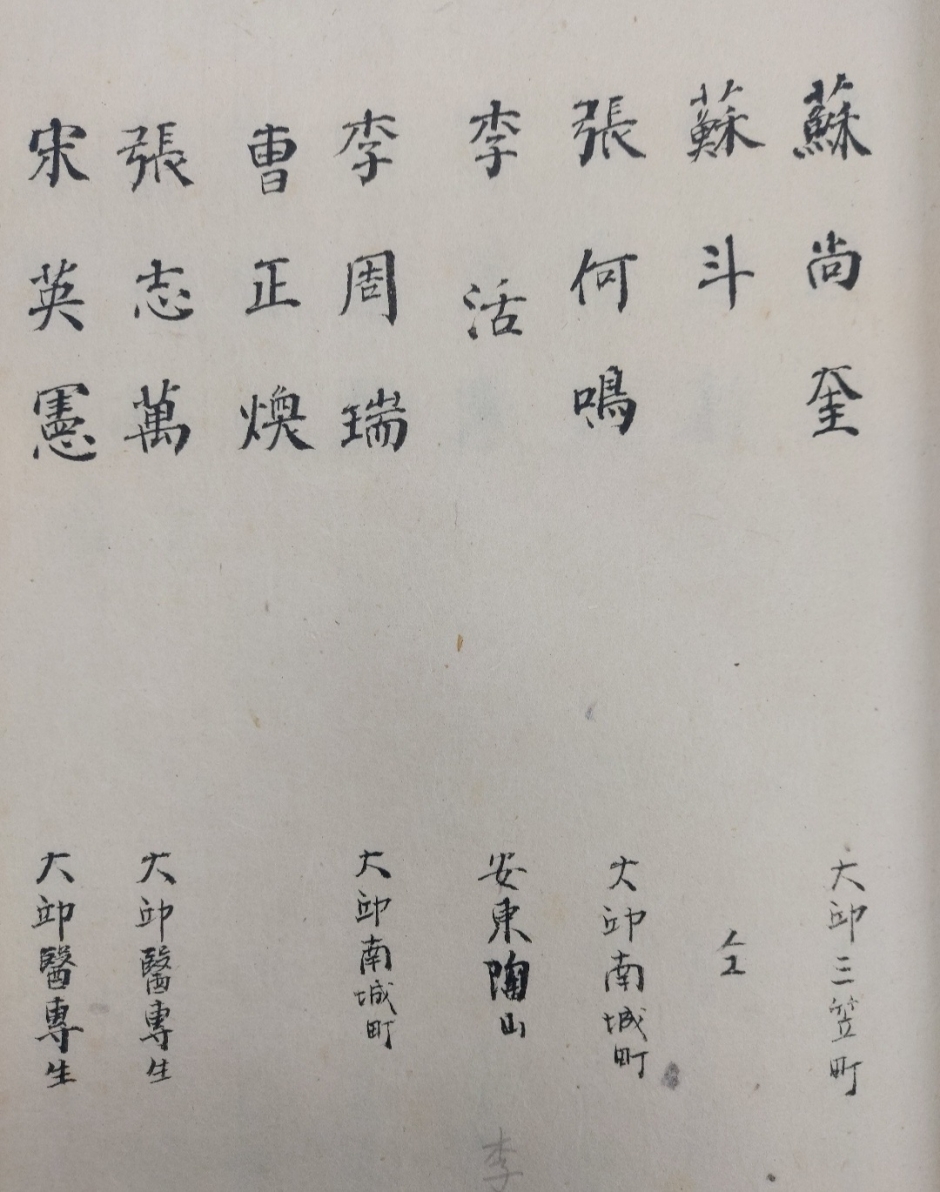 蘇尚奎 大邱三笠町
蘇斗 仝
張何鳴 大邱南城町
李活 安東陶山
李周瑞 大邱南城町
曺正煥
張志萬 大邱醫專生
宋英憲 大邱醫專生
李